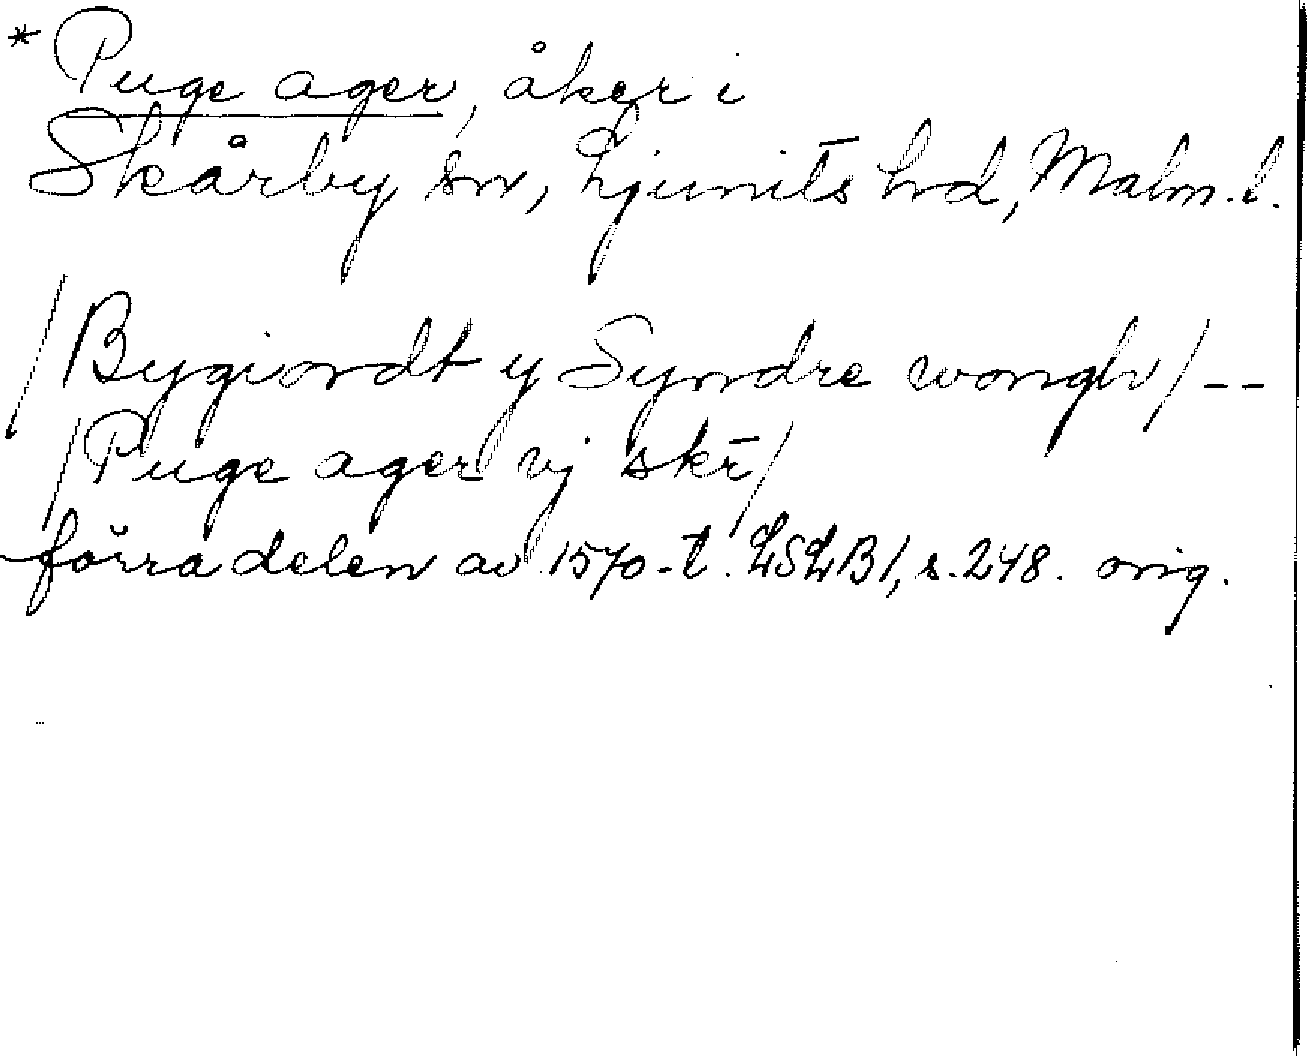 * Puge ager, åker i
Skårby sn, Ljunits hd, Malm. l.
/Bygiordt y Syndre wongh/--
/Puge ager vj skr̄/
förra delen av 1570-t. LSLB1, s. 248. orig.